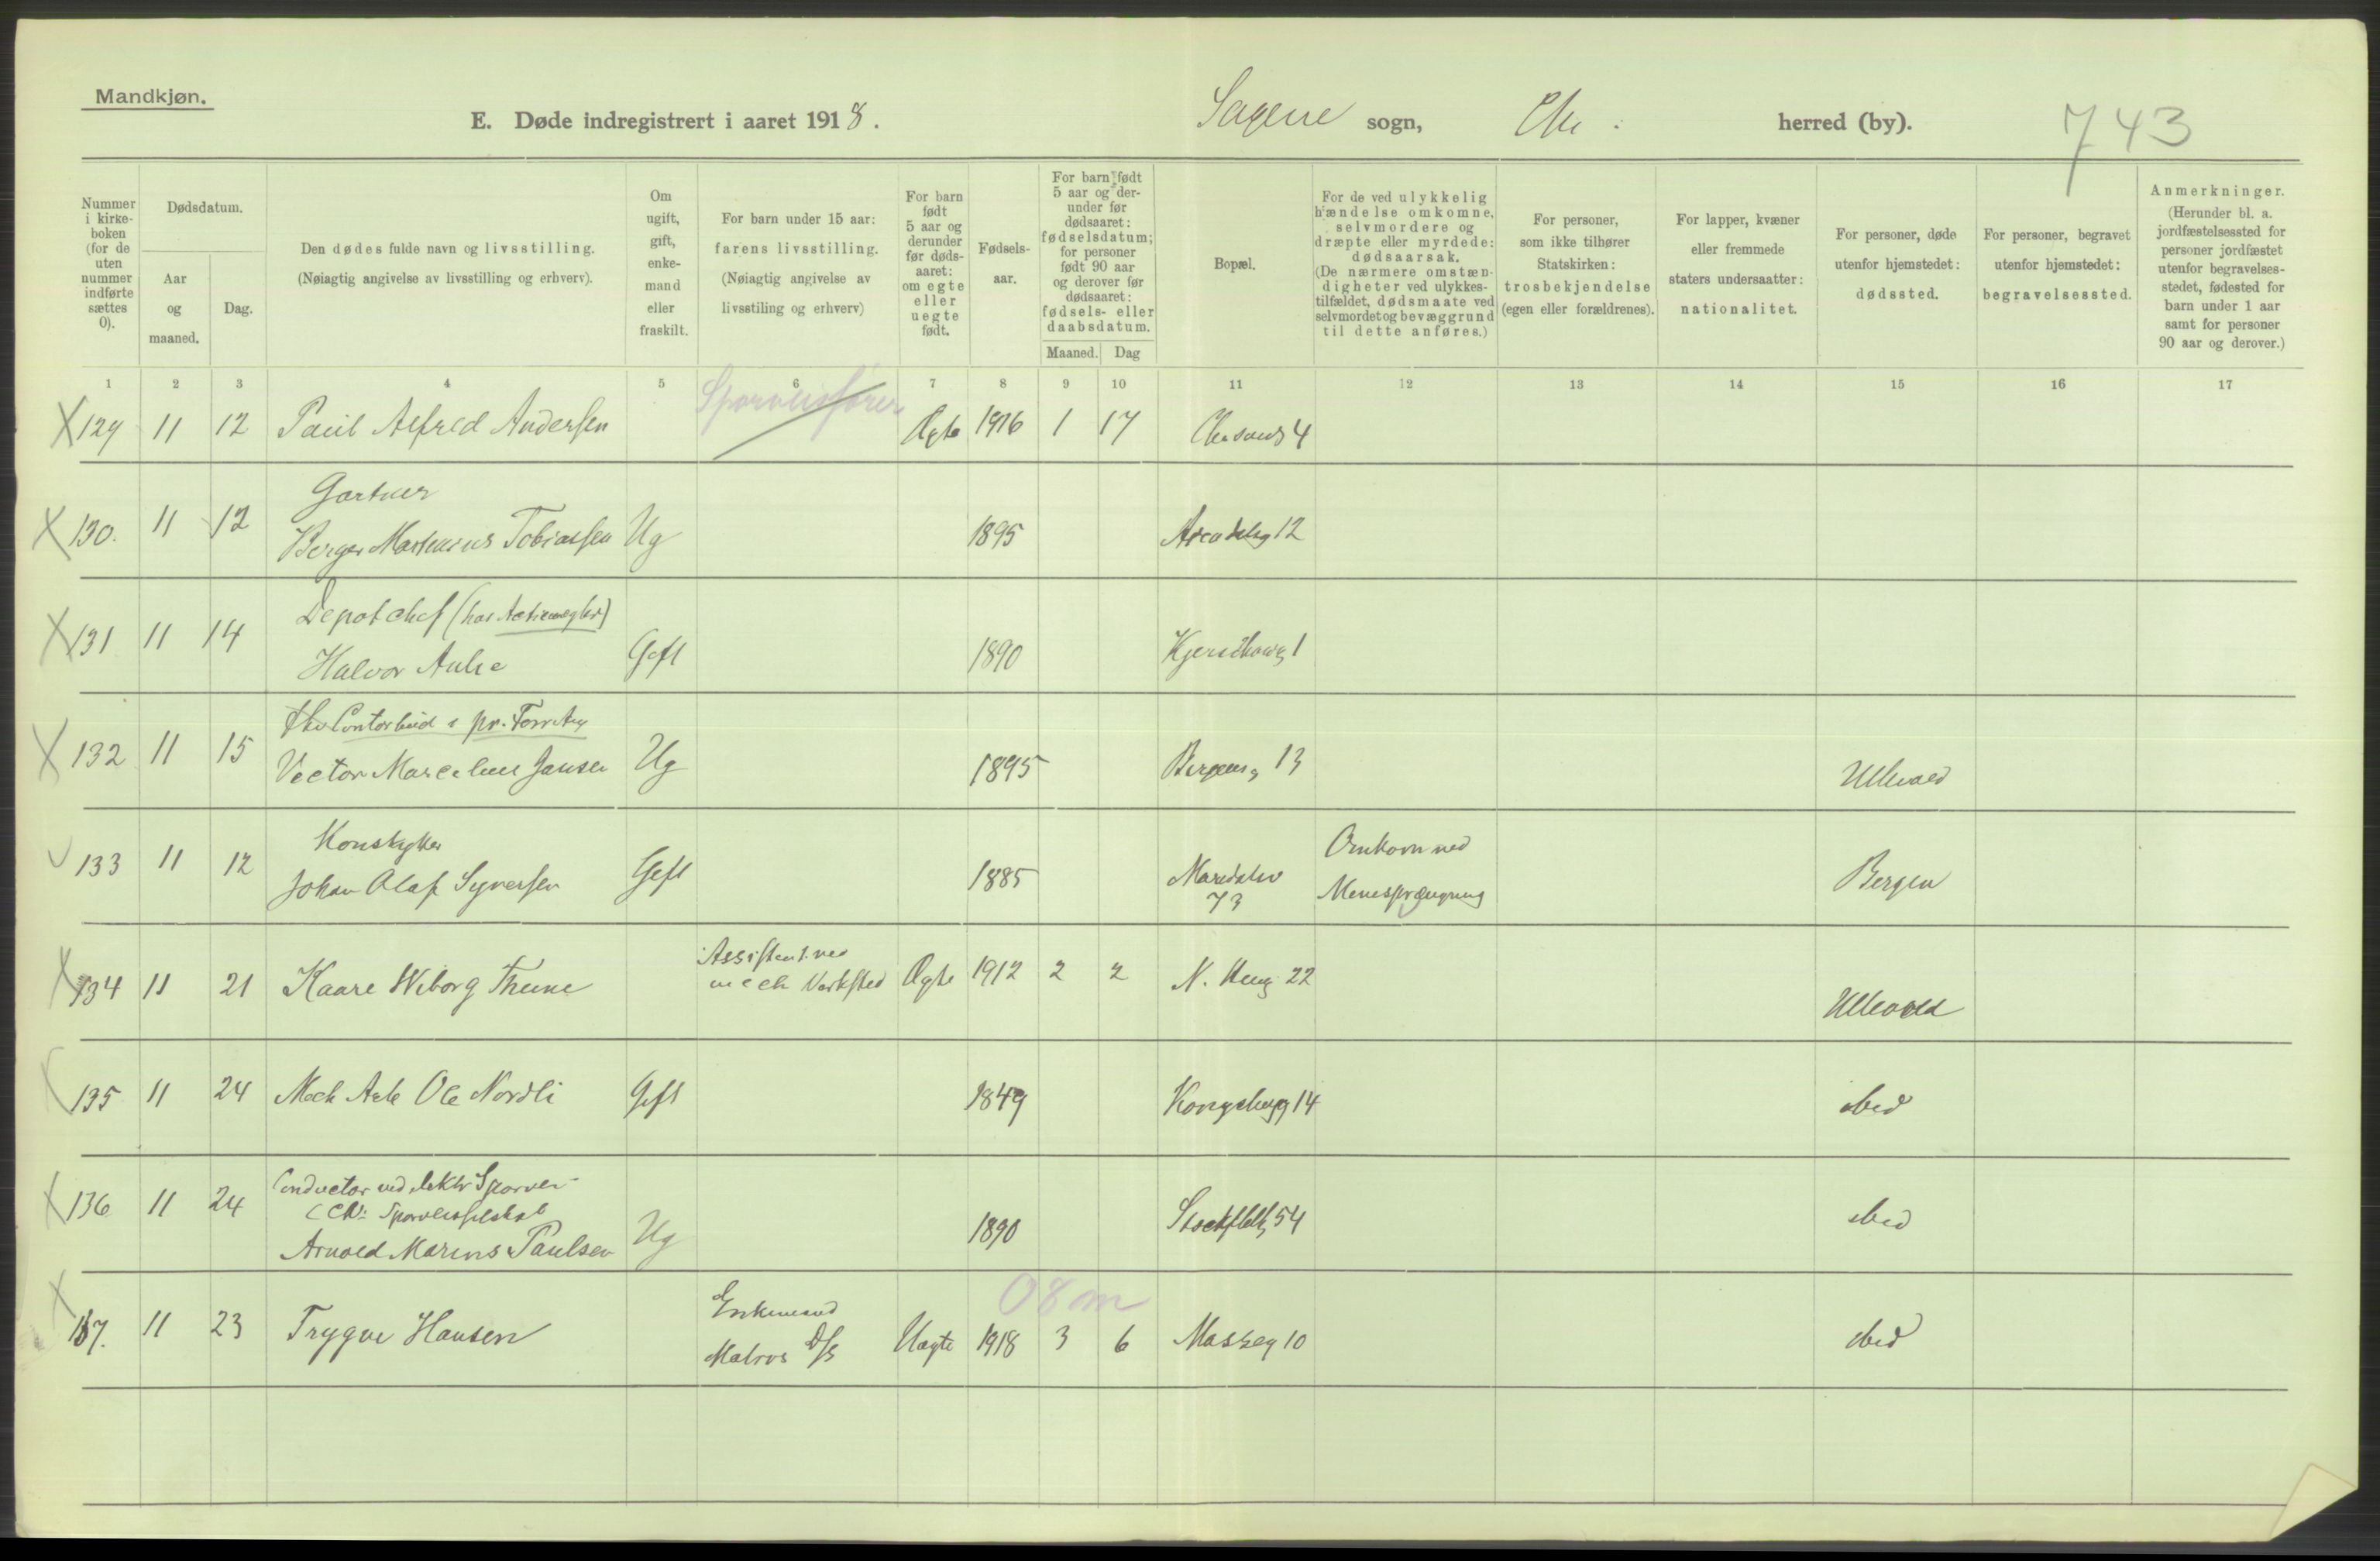 Mandkjøn.
E. Døde indregistrert i aaret 1918.
Sagene sogn, Chr. herred (by).
743
Nummer i kirke-boken (for de uten nummer indførte sættes 0).
Dødsdatum.
Aar og maaned.
Dag.
Den dødes fulde navn og livsstilling.
(Nøiagtig angivelse av livsstilling og erhverv).
Om ugift, gift, enke-mand eller fraskilt.
For barn under 15 aar: farens livsstilling.
(Nøiagtig angivelse av livsstiling og erhverv)
For barn født 5 aar og derunder før døds-aaret: om egte eller uegte født.
Fødsels-aar.
For barn født 5 aar og der-under før dødsaaret: fødselsdatum; for personer født 90 aar og derover før dødsaaret: fødsels- eller daabsdatum.
Maaned. Dag
Bopæl.
For de ved ulykkelig hændelse omkomne, selvmordere og dræpte eller myrdede: dødsaarsak.
(De nærmere omstæn-digheter ved ulykkes-tilfældet, dødsmaate ved selvmordet og bevæggrund til dette anføres.)
For personer, som ikke tilhører Statskirken: trosbekjendelse (egen eller forældrenes).
For lapper, kvæner eller fremmede staters undersaatter: nationalitet.
For personer, døde utenfor hjemstedet: dødssted.
For personer, begravet utenfor hjemstedet: begravelsessted.
Anmerkninger.
(Herunder bl. a. jordfæstelsessted for personer jordfæstet utenfor begravelses-stedet, fødested for barn under 1 aar samt for personer 90 aar og derover.)
1 2 3 4 5 6 7 8 9 10 11 12 13 14 15 16 17
Sporveisfører
X 129 11 12 Paul Alfred Andersen Ægte 1916 1 17 4
Gartner
X 130. 11 12 Birger Martinius Tobiassen Ug 1895 Arendalsg 12
Depotchef
X 131 11 14 Halvor Aulie Gift 1890 Kjerschowsg 1
Contorbud
X 132 11 15 Victor Marcelius Jansen Ug 1895 Bergensg 13 Ullevaal
Konstabler Omkom ved
133 11 12 Johan Olaf Syversen Gift 1885 Maridalsv 73 Minesprængning Bergen
Assistent ved
X 134 11 21 Kaare Wiborg Thune mek Verksted Ægte 1912 2 2 N. 22 Ullevaal
135 11 24 Mek Arb Ole Nordli Gift 1849 Kongsbergg 14 ibid
Conductor ved elektr Sporvei
(Chr. Sporveisselskab
X 136 11 24 Arnold Marius Paulsen Ug 1890 Stockflethg 54 ibid
Enkemand 08m
X 137. 11 23 Trygve Hansen Matros D/S Uægte 1918 3 6 Mosseg 10 ibid